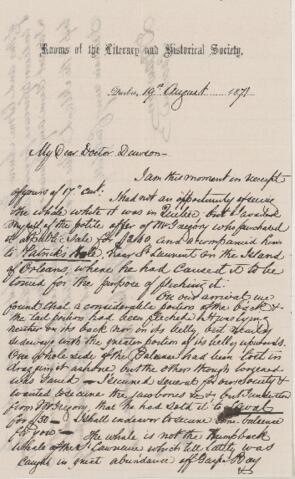 Rooms of the Literary and Historical Society,
Quebec, 19th August 1871
My Dear Doctor Dawson
I am this moment in receipt
of yours of 17th Curt. I had not an opportunity of seeing
the whale while it was in Quebec but availed
myself of the polite offer of McGregory who purchased
it at Public Sale for and accompanied him
to Patrick's Hole, near St Laurent on the Island
of Orleans, where he had caused it to be
towed for the purpose of flenching it.
On our arrival we
found that a considerable portion of the back &
the tail portion had been flenched & it was lying
neither on its back nor on its belly, but nearly
sideways with the greater portion of its belly upwards.
One whole side of the had been lost in
dragging it ashore but the other though
was saved. I secured several for our Society &
wanted to secure the jaw bones &c but
from McGregory that he had sold it to Laval
for I shall endeavor to secure some baleen
for you. The whale is not the Humpback
whale of the St Lawrence which till lately was
caught in great abundance off Gaspé Bay